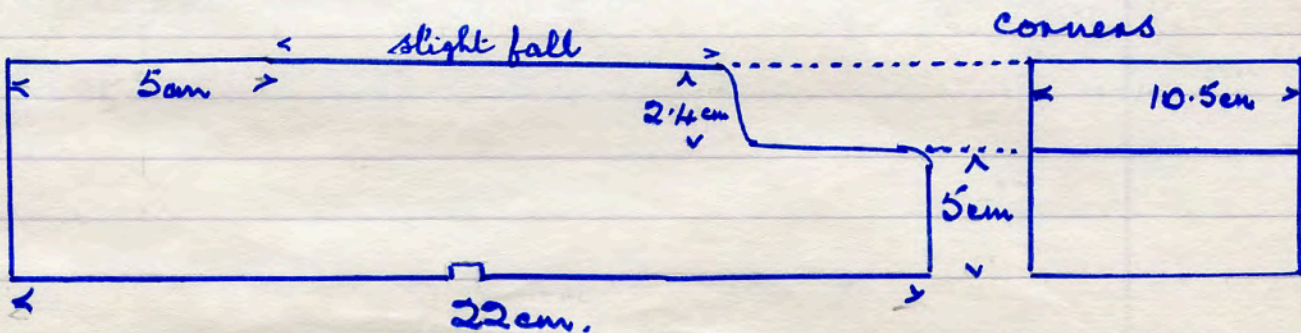 corners
slight fall
5cm
2.4cm
10.5cm
5cm
22cm.